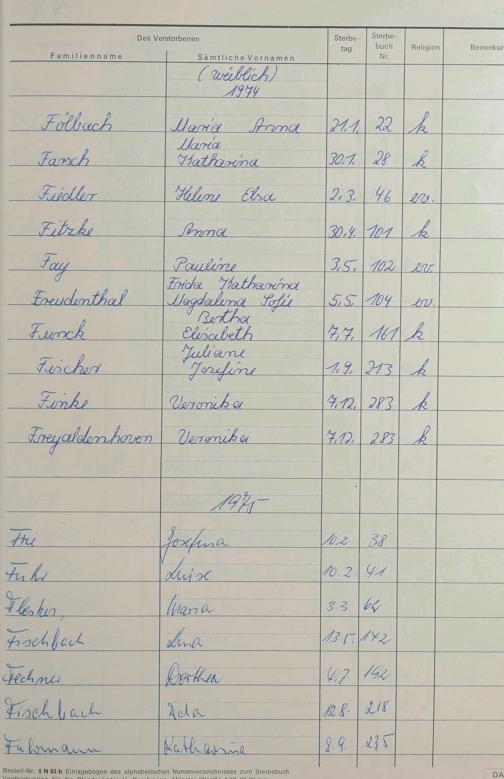 Des Verstorbenen Sterbe- Sterbe- Religion Bemerku
Familienname Sämtliche Vornamen tag buch
Nr.
(weiblich)
1974
Fölbach Maria Anna 21.1. 22 k
Maria
Farsch Katharina 30.1. 28 k
Fiedler Helene Elsa 2.3. 46 ev.
Fitzke Anna 30.4. 101 k
Fay Pauline 3.5. 102 ev.
Frida Katharina
Freudenthal Magdalena Sofie 5.5. 104 ev.
Bertha
Funck Elisabeth 7.7. 161 k
Juliane
Fischer Josefine 1.9. 213 k
Finke Veronika 7.12. 283 k
Freyaldenhoven Veronika 7.12. 283 k
1975
Josefina 10.2. 38
Fuhr Luise 10.2. 41
Maria 3.3
Fischbach 13.5. 142
Fechner Dorthea 4.7 192
Fischbach 12.8. 218
Fuhrmann Katharina 9. 235
Bestell-Nr. 5 N 03 b Einlagebogen des alphabetischen Namenverzeichnisses zum Sterbebuch